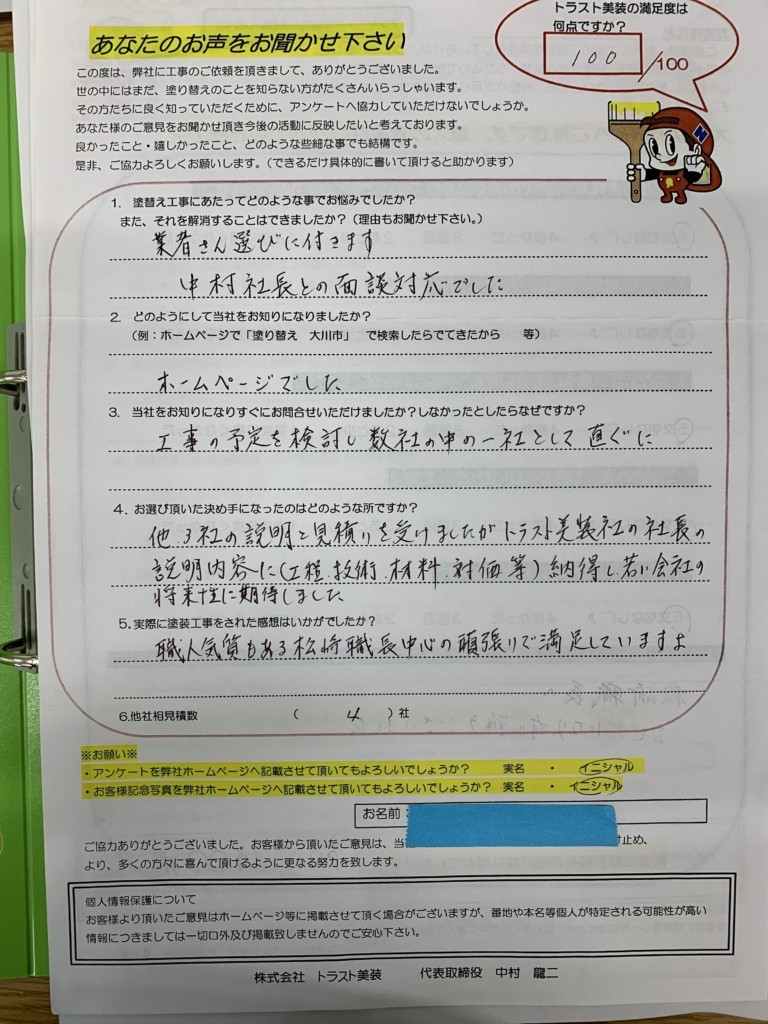 トラスト美装の満足度は
何点ですか？
100/100
あなたのお声をお聞かせ下さい
この度は、弊社に工事のご依頼を頂きまして、ありがとうございました。
世の中にはまだ、塗り替えのことを知らない方がたくさんいらっしゃいます。
その方たちに良く知っていただくために、アンケートへ協力していただけないでしょうか。
あなた様のご意見をお聞かせ頂き今後の活動に反映したいと考えております。
良かったこと・嬉しかったこと、どのような些細な事でも結構です。
是非、ご協力よろしくお願いします。（できるだけ具体的に書いて頂けると助かります）
N
1. 塗替え工事にあたってどのような事でお悩みでしたか？
また、それを解消することはできましたか？（理由もお聞かせ下さい。）
業者さん選びに付きます
中村社長との面談対応でした
2. どのようにして当社をお知りになりましたか？
（例：ホームページで「塗り替え 大川市」 で検索したらでてきたから 等）
ホームページでした
3. 当社をお知りになりすぐにお問合せいただけましたか？しなかったとしたらなぜですか？
工事の予定を検討し数社の中の一社として直ぐに
4. お選び頂いた決め手になったのはどのような所ですか？
他3社の説明と見積りを受けましたがトラスト美装社の社長の
説明内容に（工程.技術.材料.対価等）納得し若い会社の
将来性に期待しました
5.実際に塗装工事をされた感想はいかがでしたか？
職人気質もある松崎職長中心の頑張りで満足していますよ
6.他社相見積数 （ 4 ）社
※お願い※
・アンケートを弊社ホームページへ記載させて頂いてもよろしいでしょうか？ 実名 ・ イニシャル
・お客様記念写真を弊社ホームページへ記載させて頂いてもよろしいでしょうか？ 実名 ・ イニシャル
お名前：
ご協力ありがとうございました。お客様から頂いたご意見は、当 け止め、
より、多くの方々に喜んで頂けるように更なる努力を致します。
個人情報保護について
お客様より頂いたご意見はホームページ等に掲載させて頂く場合がございますが、番地や本名等個人が特定される可能性が高い
情報につきましては一切口外及び掲載致しませんのでご安心下さい。
株式会社 トラスト美装 代表取締役 中村 龍二